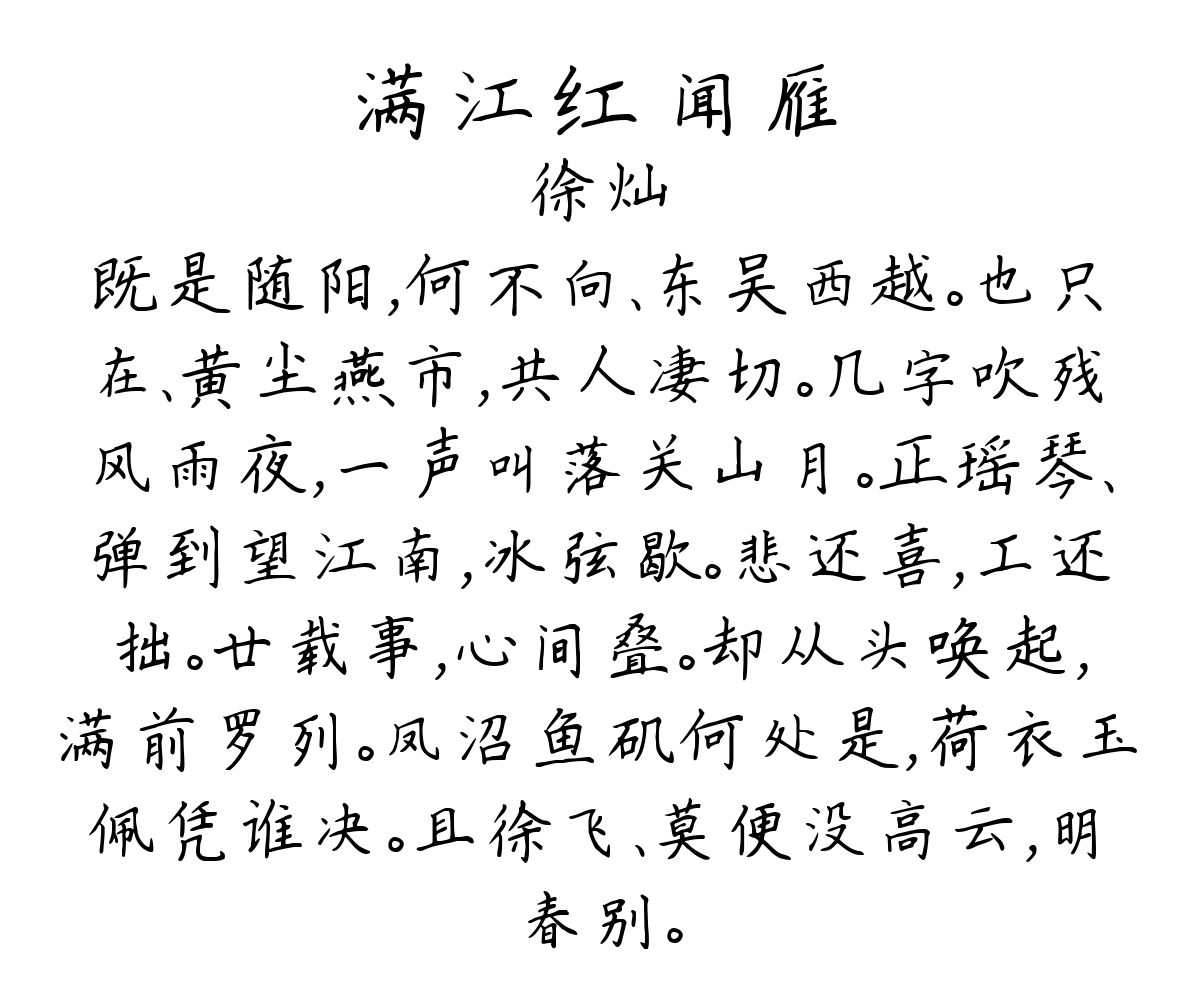 满江红 闻雁
徐灿
既是随阳,何不向、东吴西越。也只
在、黄尘燕市,共人凄切。几字吹残
风雨夜,一声叫落关山月。正瑶琴、
弹到望江南,冰弦歇。悲还喜,工还
拙。廿载事,心间叠。却从头唤起,
满前罗列。凤沼鱼矶何处是,荷衣玉
佩凭谁决。且徐飞、莫便没高云,明
春别。